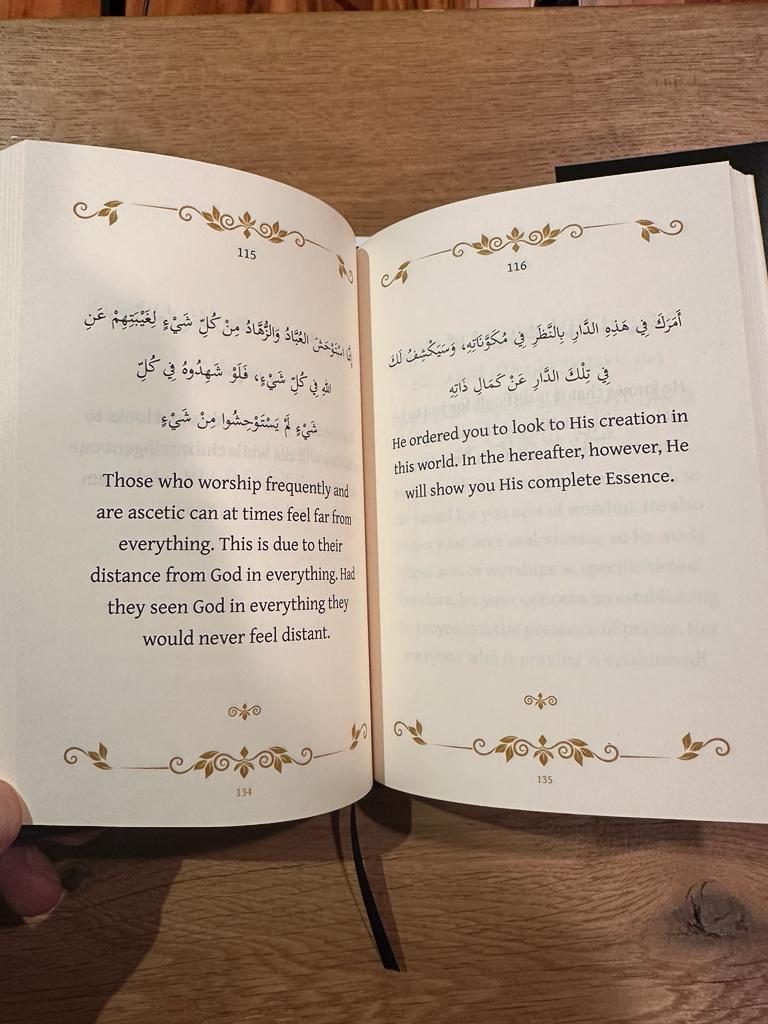 115
إِنَّمَا اسْتَوْحَشَ العُبَّادُ وَالزُّهَّادُ مِنْ كُلِّ شَيْءٍ لِغَيْبَتِهِمْ عَنِ
اللهِ فِي كُلِّ شَيْءٍ، فَلَوْ شَهِدُوهُ فِي كُلِّ
شَيْءٍ لَمْ يَسْتَوْحِشُوا مِنْ شَيْءٍ
Those who worship frequently and
are ascetic can at times feel far from
everything. This is due to their
distance from God in everything. Had
they seen God in everything they
would never feel distant.
134
116
أَمَرَكَ فِي هَذِهِ الدَّارِ بِالنَّظَرِ فِي مُكَوَّنَاتِهِ، وَسَيَكْشِفُ لَكَ
فِي تِلْكَ الدَّارِ عَنْ كَمَالِ ذَاتِهِ
He ordered you to look to His creation in
this world. In the hereafter, however, He
will show you His complete Essence.
135